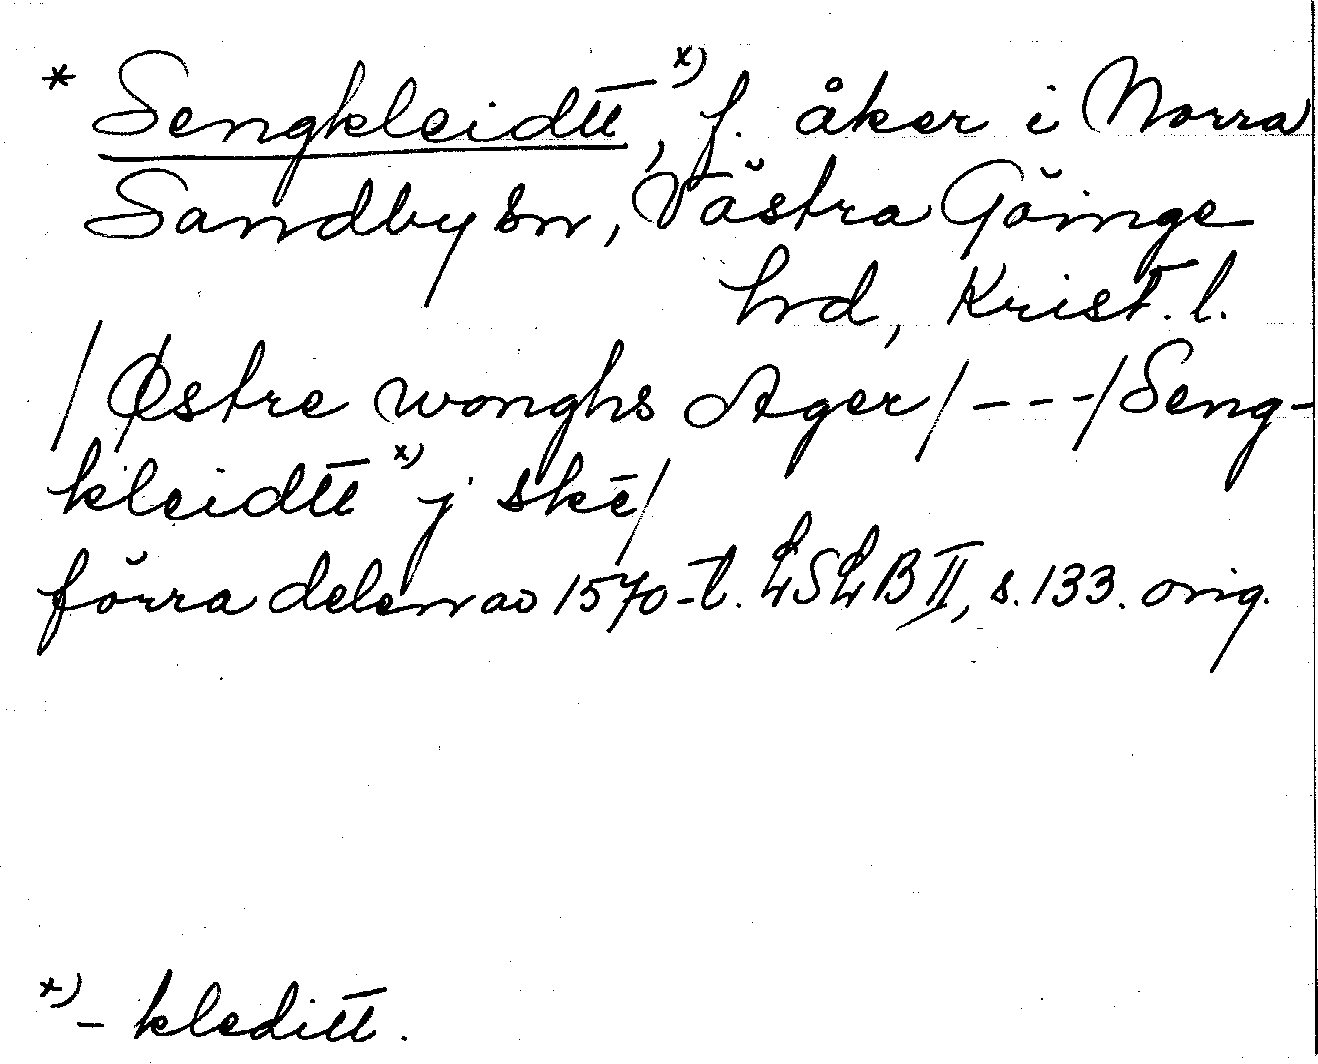 * Sengkleidtt x), f. åker i Norra
Sandby sn, Västra Göinge
hrd, Krist. l.
/Østre wonghs Ager/---/Seng-
kleidtt x) j skē/
förra delen av 1570-t. LSLB II, s. 133. orig.
x) - kleditt.